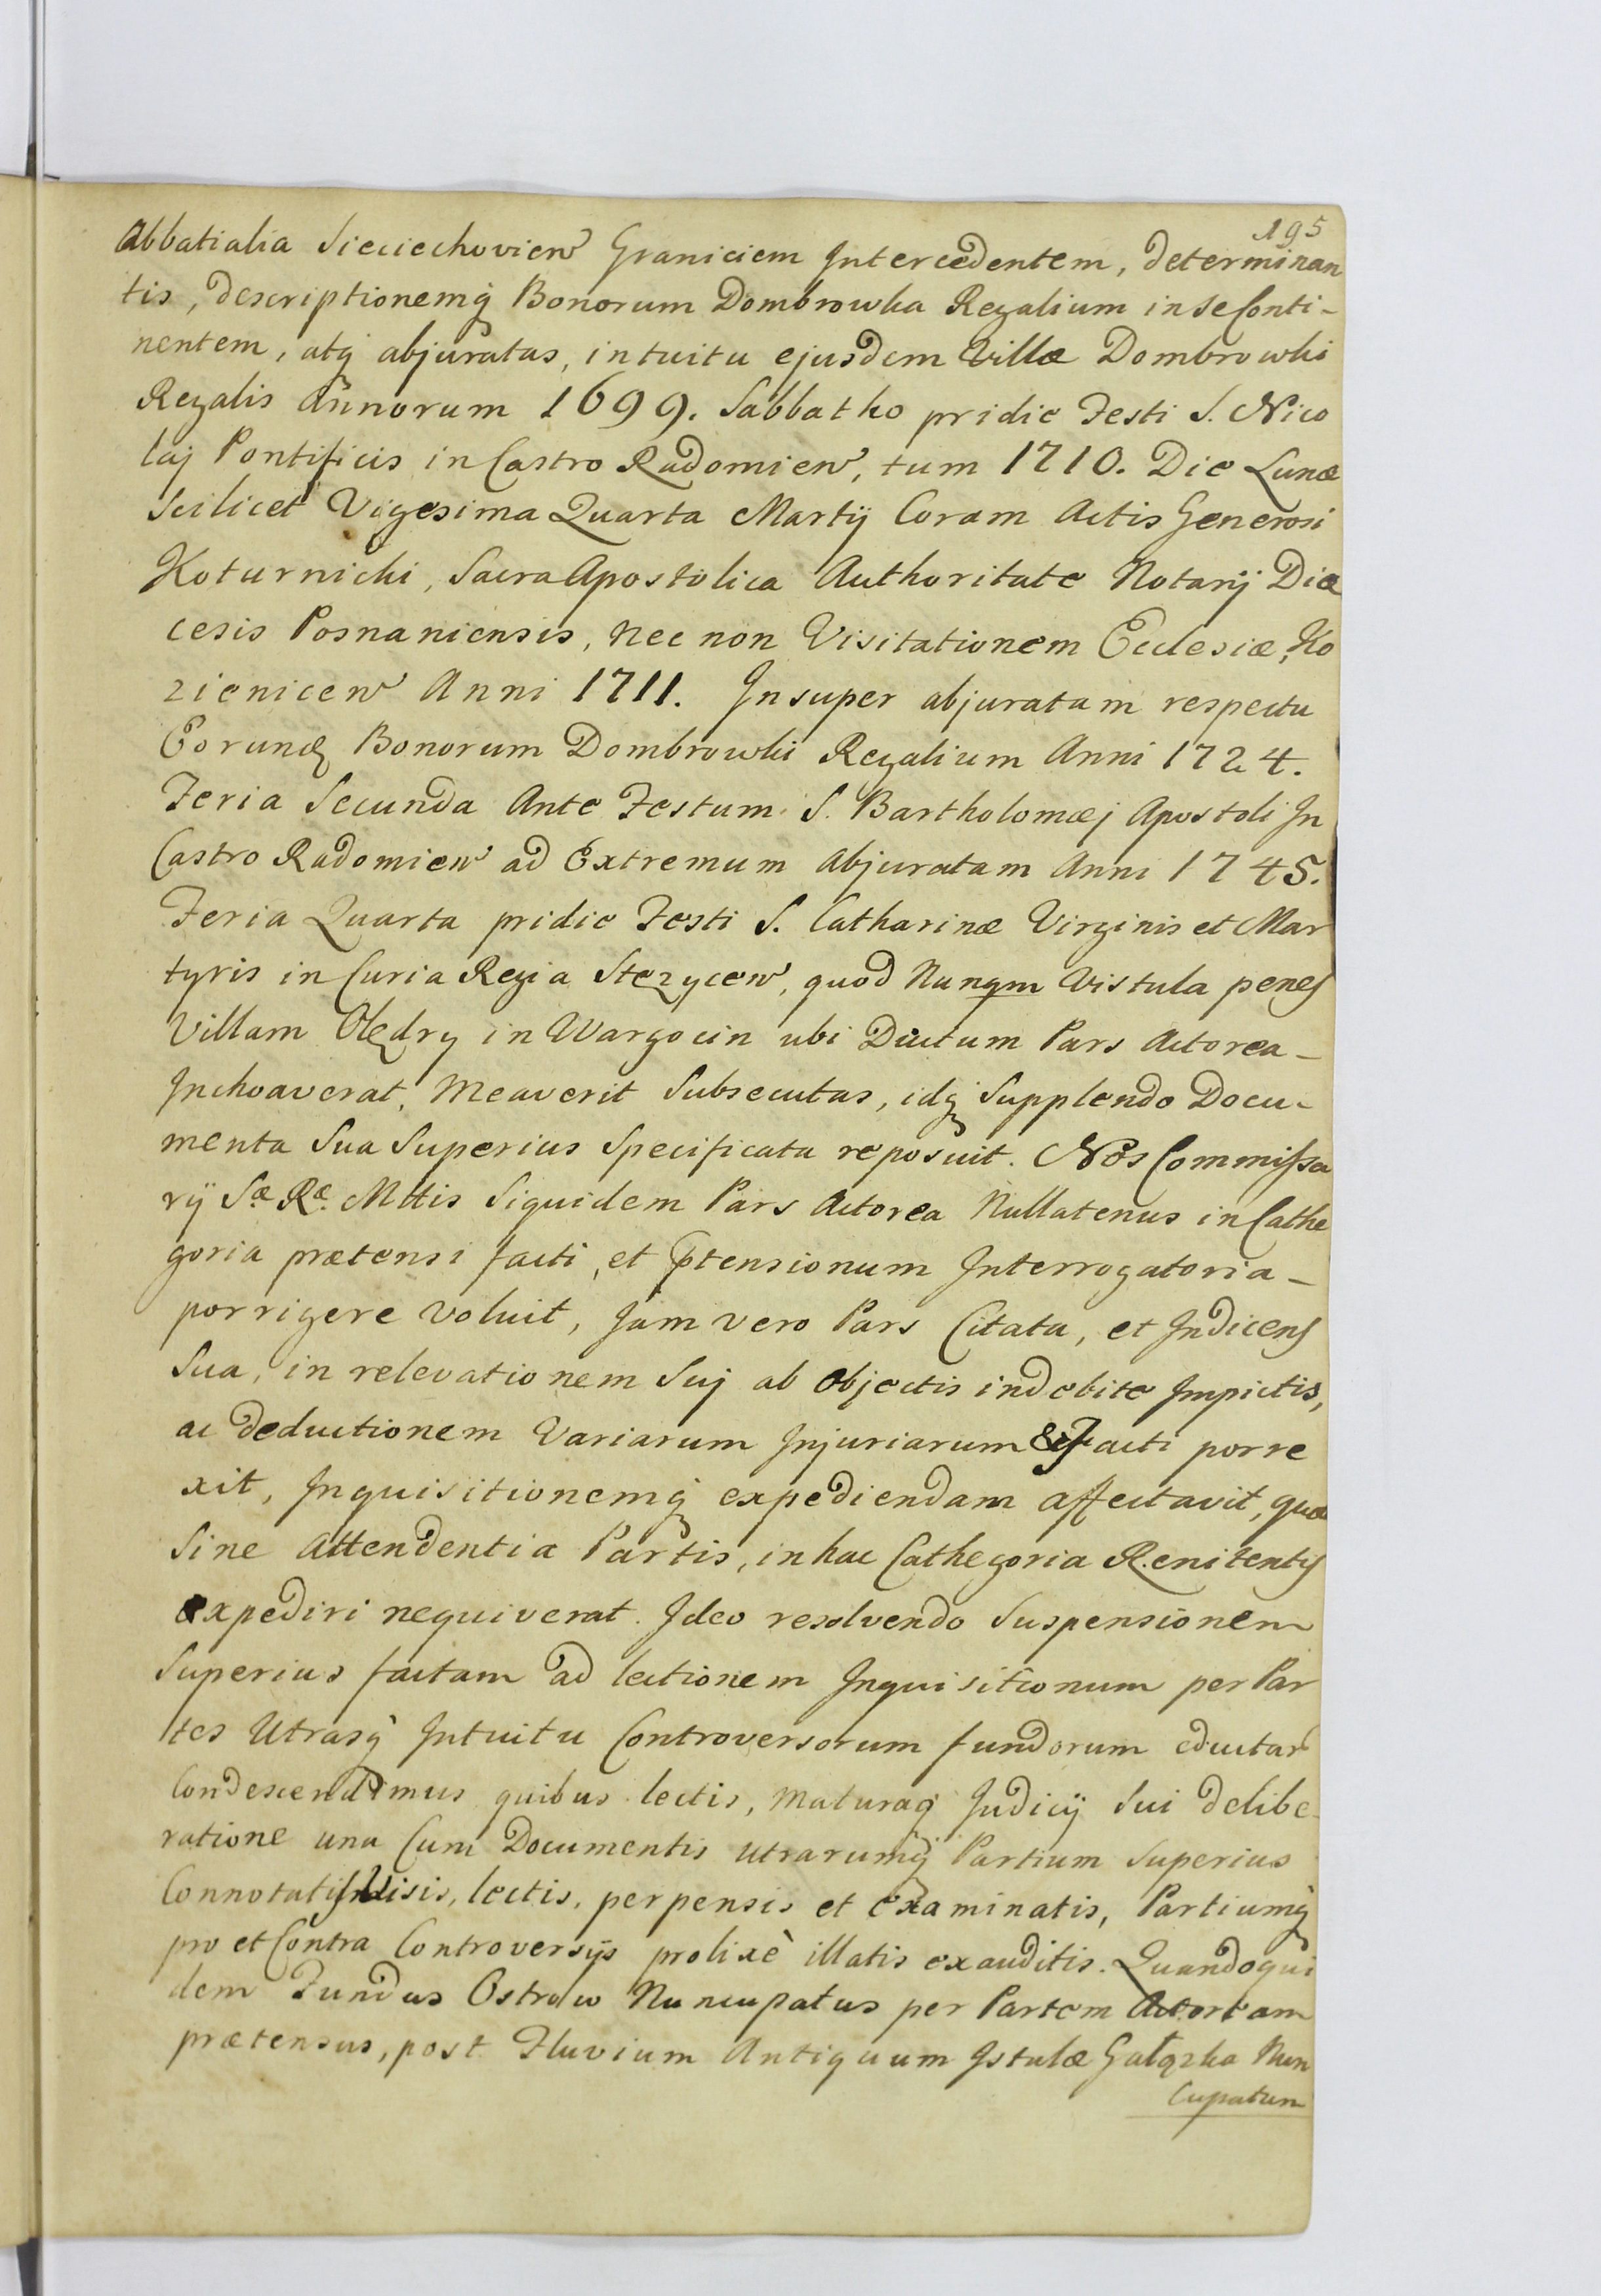 195
Abbatialia Sieciechovien Graniciem Intercedentem, determinan
tis, descriptionemq Bonorum Dombrowka Regalium in se Conti-
nentem, atq abjuratas, intuitu ejusdem Villæ Dombrowki
Regalis Annorum 1699. Sabbatho pridie Festi S. Nico
laj Pontificis in Castro Radomien, tum 1710. Die Lunæ
Scilicet Vigesima Quarta Martij Coram Actis Generosi
Koturnicki, Sacra Apostolica Authoritate Notarij Diæ
cesis Posnaniensis, nec non Visitationem Ecclesiæ, Ko
zienicen Anni 1711. Insuper abjuratam respectu
Eorund Bonorum Dombrowki Regalium Anni 1724.
Feria Secunda Ante Festum S. Bartholomæj Apostoli In
Castro Radomien ad Extremum abjuratam Anni 1745.
Feria Quarta pridie Festi S. Catharinæ Virginis et Mar
tyris in Curia Regia Stezycen, quod Nunqm Vistula penes
Villam Olędry in Wargocin ubi Ductum Pars Actorea-
Inchoaverat, Meaverit Subsecutas, idq Supplendo Docu-
menta Sua Superius Specificata reposuit. Nos Commissa
rij Sæ Ræ Mttis Siquidem Pars Actorea Nullatenus in Cathe
goria prætensi facti, et ptensionum Interrogatoria-
porrigere voluit, Jam vero Pars Citata, et Indicens
Sua, in relevationem Suj ab objectis indebite Impictis,
ac deductionem Variarum Injuriarum & Facti porre
xit, Inquisitionemq expediendam affectavit, quæ
Sine Attendentia Partis, in hac Cathegoria Renitentis
expediri nequiverat. Ideo resolvendo Suspensionem
Superius factam ad lectionem Inquisitionum per Par
tes Utrasq Intuitu Controversorum fundorum eductar
Condescendimus quibus lectis, Maturaq Judicij Sui delibe-
ratione una Cum Documentis utrarumq Partium Superius
Connotatis Visis, lectis, perpensis et examinatis, Partiumq
pro et Contra Controversijs prolixè illatis exauditis. Quandoqui
dem Fundus Ostrow Nuncupatus per Partem Actoream
prætensus, post Fluvium Antiquum Istulæ Gałązka Nun
cupatum